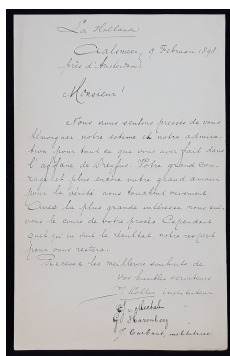 La Hollande
Aalsmeer, 9 Februari 1898
près d'Amsterdam
Monsieur!
Nous nous sentons pressés de vous
témoigner notre estime et notre admira-
tion pour tout ce que vous avez fait dans
l'affaire de Dreyfus. Votre grand cou-
rage et plus encore votre grand amour
pour la vérité nous touchent vivement.
Avec la plus grande intérêsse nous sui-
vons le cours de votre procès. Cependant
quel qu'en soit le résultat notre respect
pour vous restera.
Recevez les meilleurs souhaits de
vos humbles serviteurs
instituteur
"
Harenberg "
institutrice